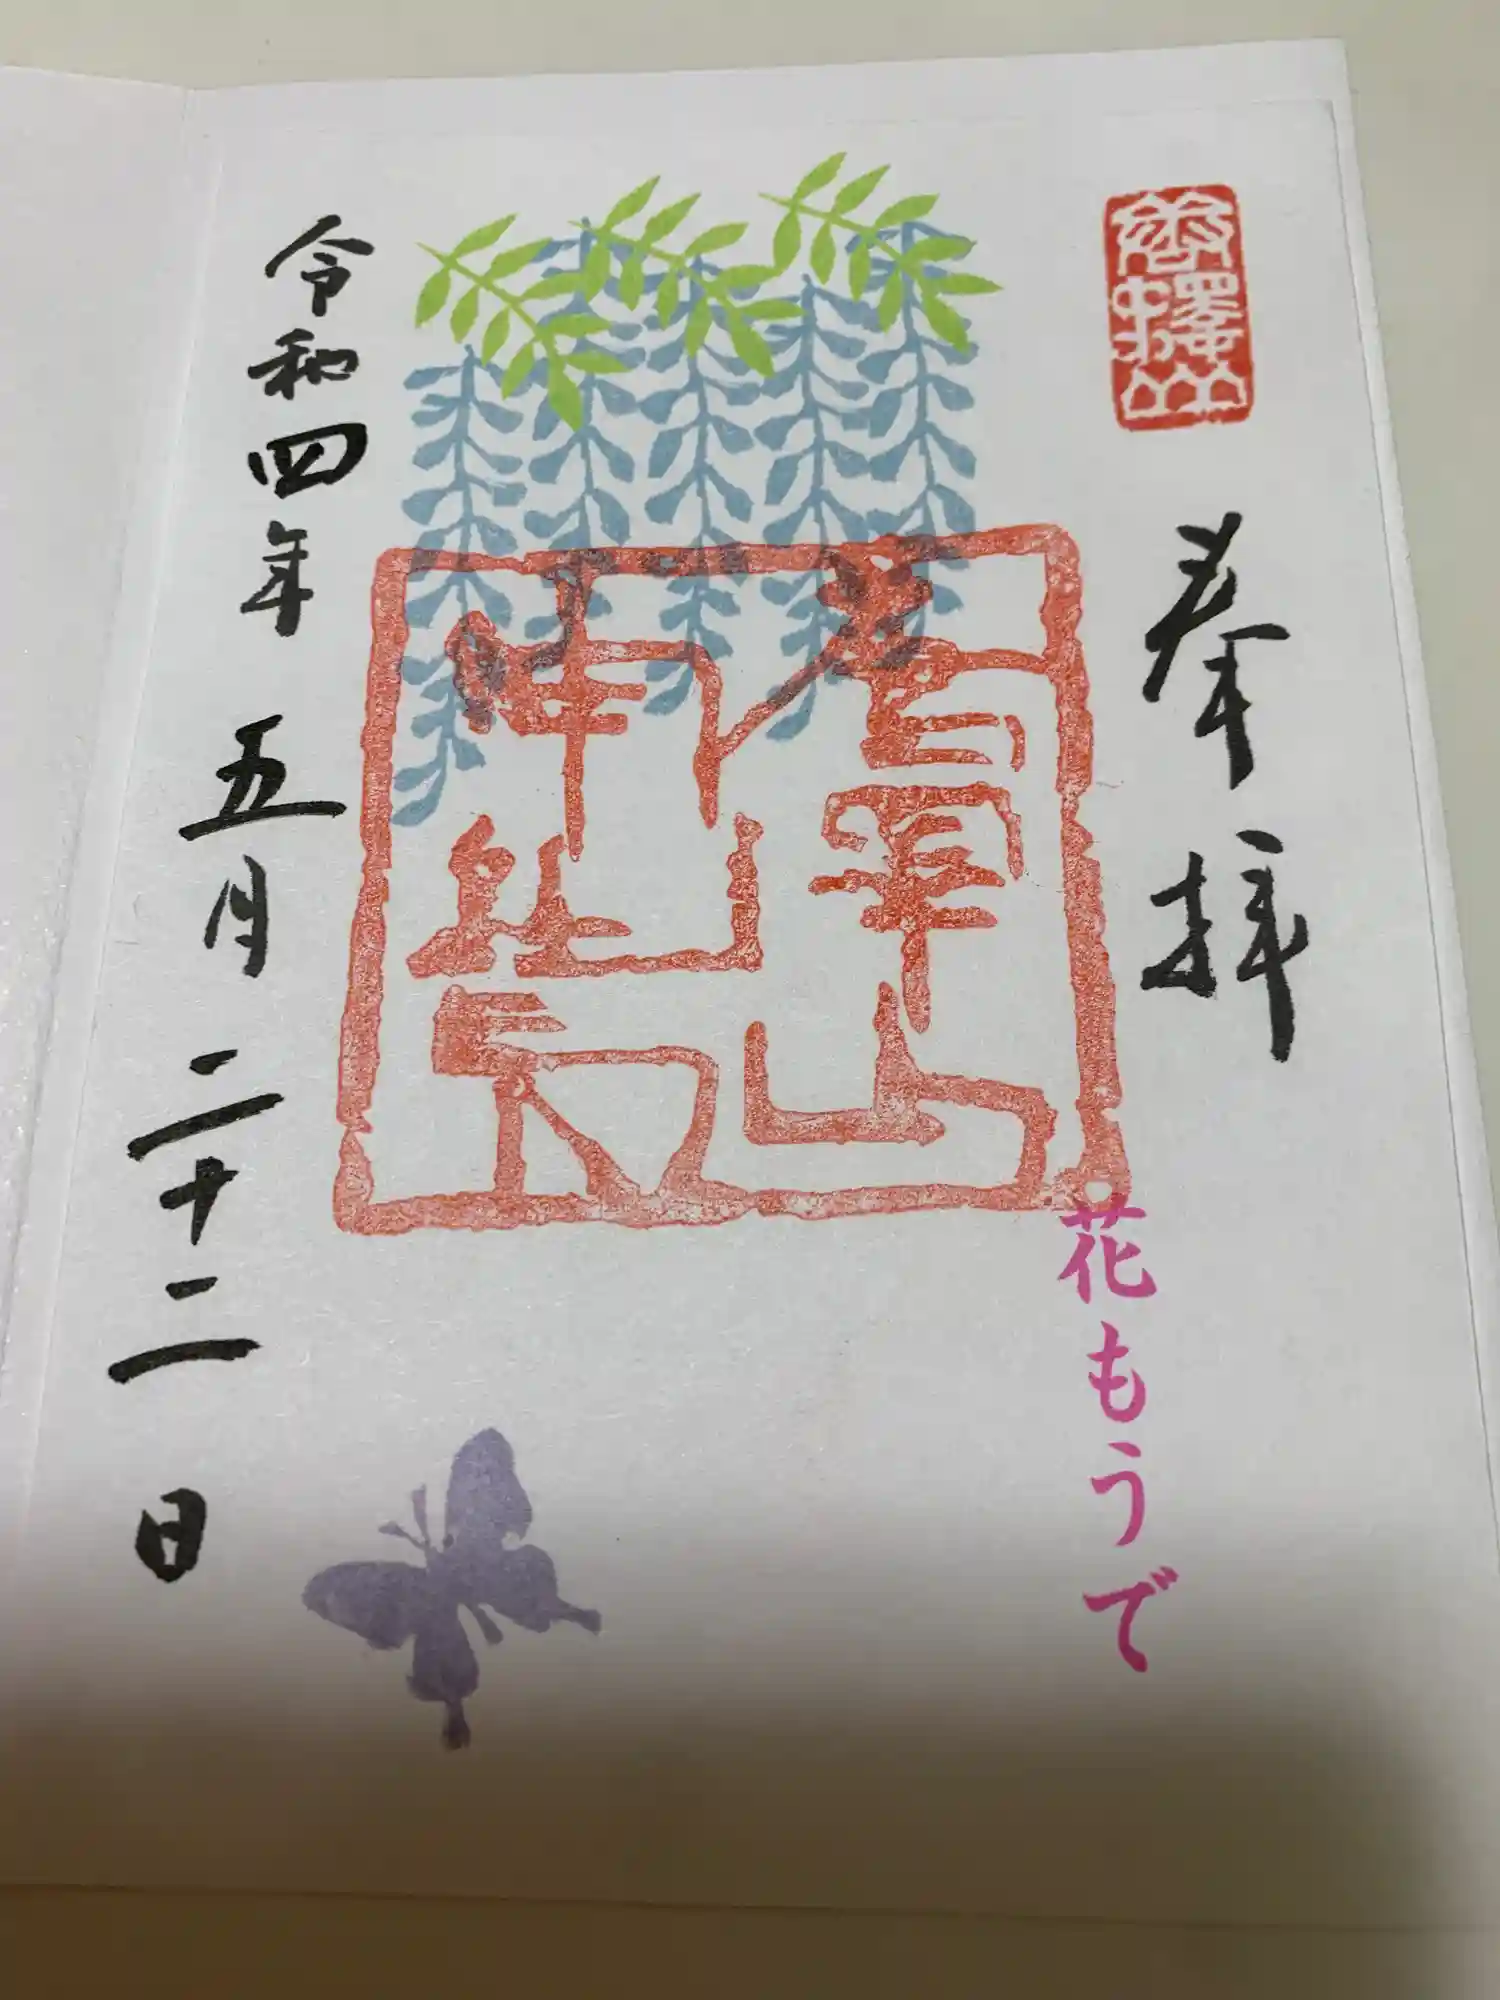 奉拝
花もうで
令和四年 五月 二十二日